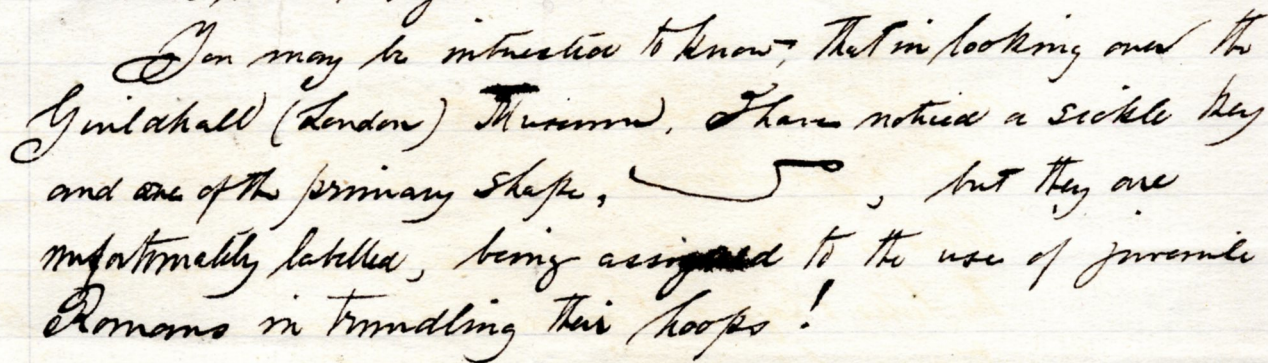 You may be interested to know, that in looking over the
Guildhall (London) Museum, I have noticed a sickle key
and one of the primary shape,        , but they are
unfortunately labelled, being assigned to the use of juvenile
Romans in trundling their hoops!